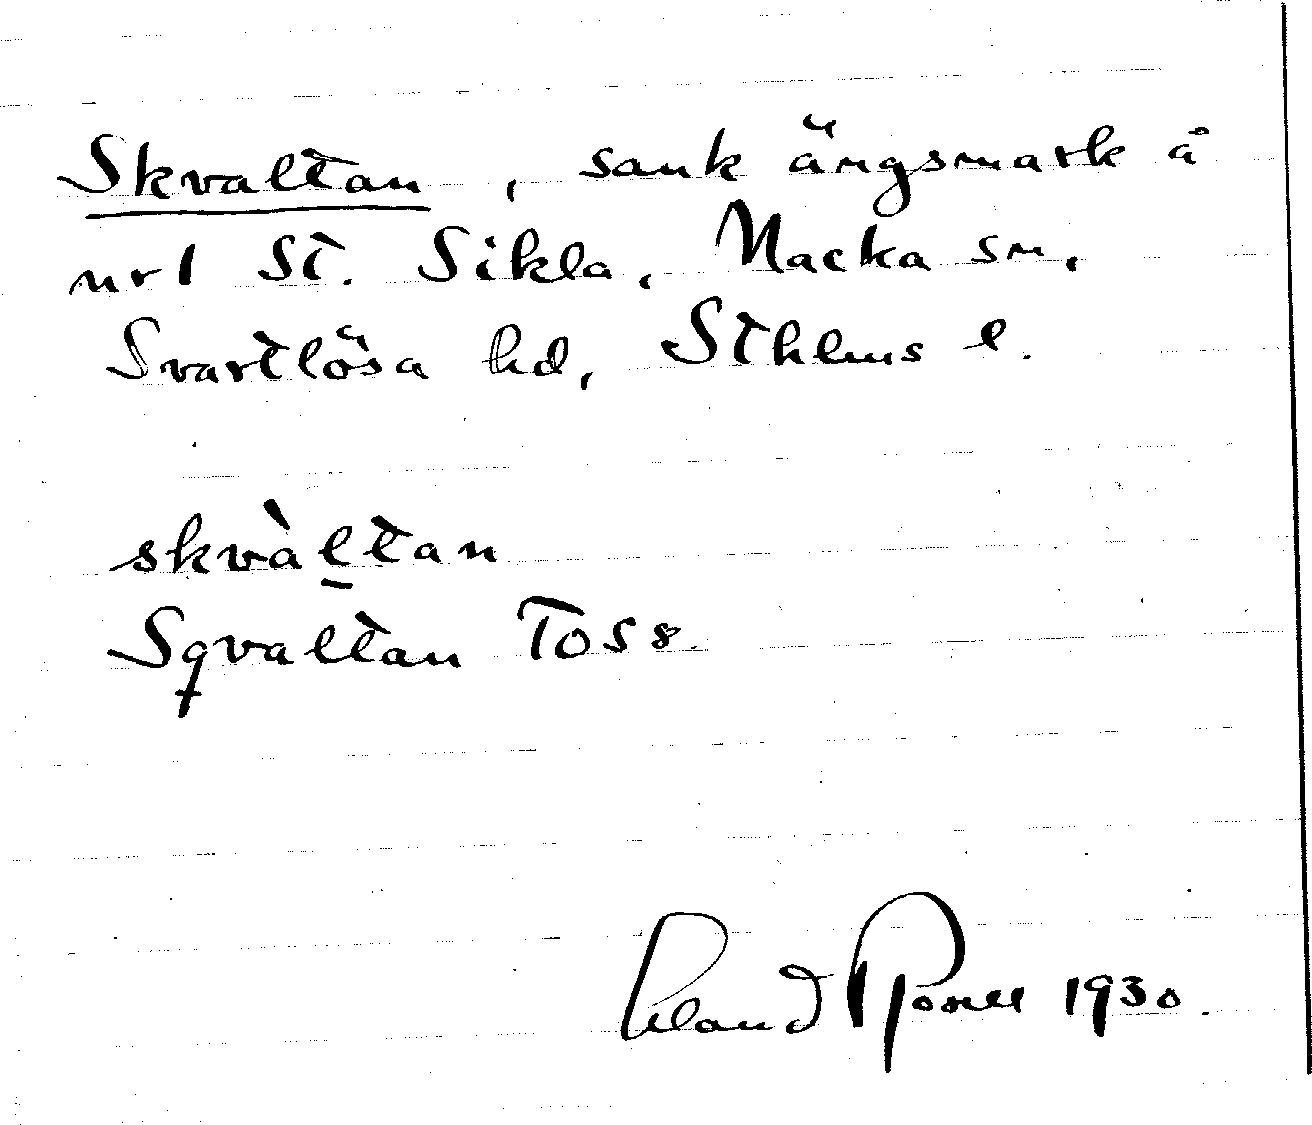 Skvaltan, sank ängsmark å
nr 1 St. Sikla, Nacka sn,
Svartlösa hd, Sthlms l.
skvàl̲tan
Sqvaltan TOS 8.
1930.